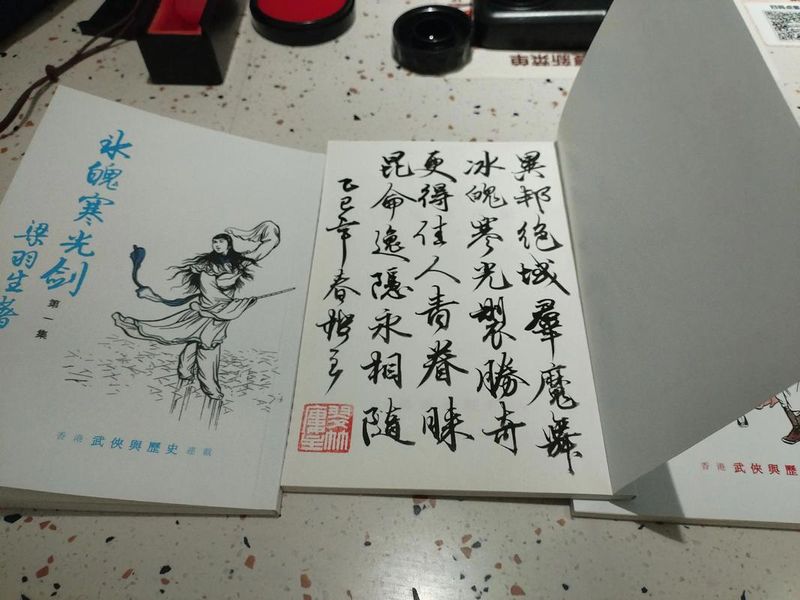 冰魄寒光剑
梁羽生著
第一集
香港 武俠與歷史 連載
異邦絕域羣魔舞
冰魄寒光製勝奇
更得佳人青眷睞
昆侖逸隱永相随
乙巳年春
香港 武俠與歷
新菜单